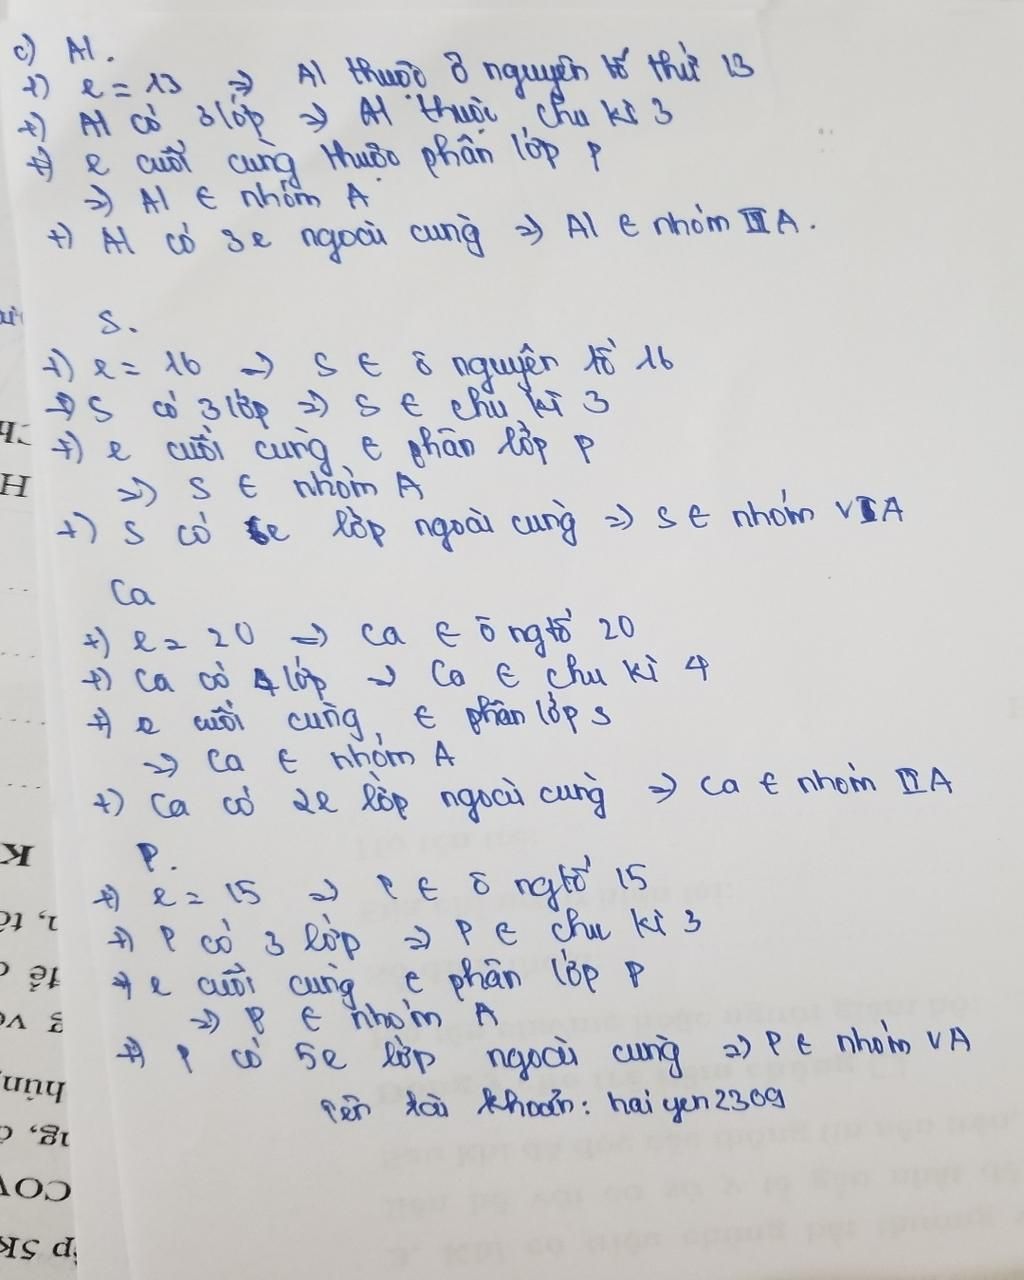 c) Al.
+) e = 13 => Al thuộc ô nguyên tố thứ 13
+) Al có 3 lớp => Al thuộc chu kì 3
+) e cuối cùng thuộc phân lớp p
=> Al ∈ nhóm A
+) Al có 3e ngoài cùng => Al ∈ nhóm IIIA.
S.
+) e = 16 => S ∈ ô nguyên tố 16
+) S có 3 lớp => S ∈ chu kì 3
+) e cuối cùng ∈ phân lớp p
=> S ∈ nhóm A
+) S có 6e lớp ngoài cùng => S ∈ nhóm VIA
Ca
+) e = 20 => Ca ∈ ô ngtố 20
+) Ca có 4 lớp => Ca ∈ chu kì 4
+) e cuối cùng ∈ phân lớp s
=> Ca ∈ nhóm A
+) Ca có 2e lớp ngoài cùng => Ca ∈ nhóm IIA
P.
+) e = 15 => P ∈ ô ngtố 15
+) P có 3 lớp => P ∈ chu kì 3
+) e cuối cùng ∈ phân lớp p
=> P ∈ nhóm A
+) P có 5e lớp ngoài cùng => P ∈ nhóm VA
Tên tài khoản: haiyen2309